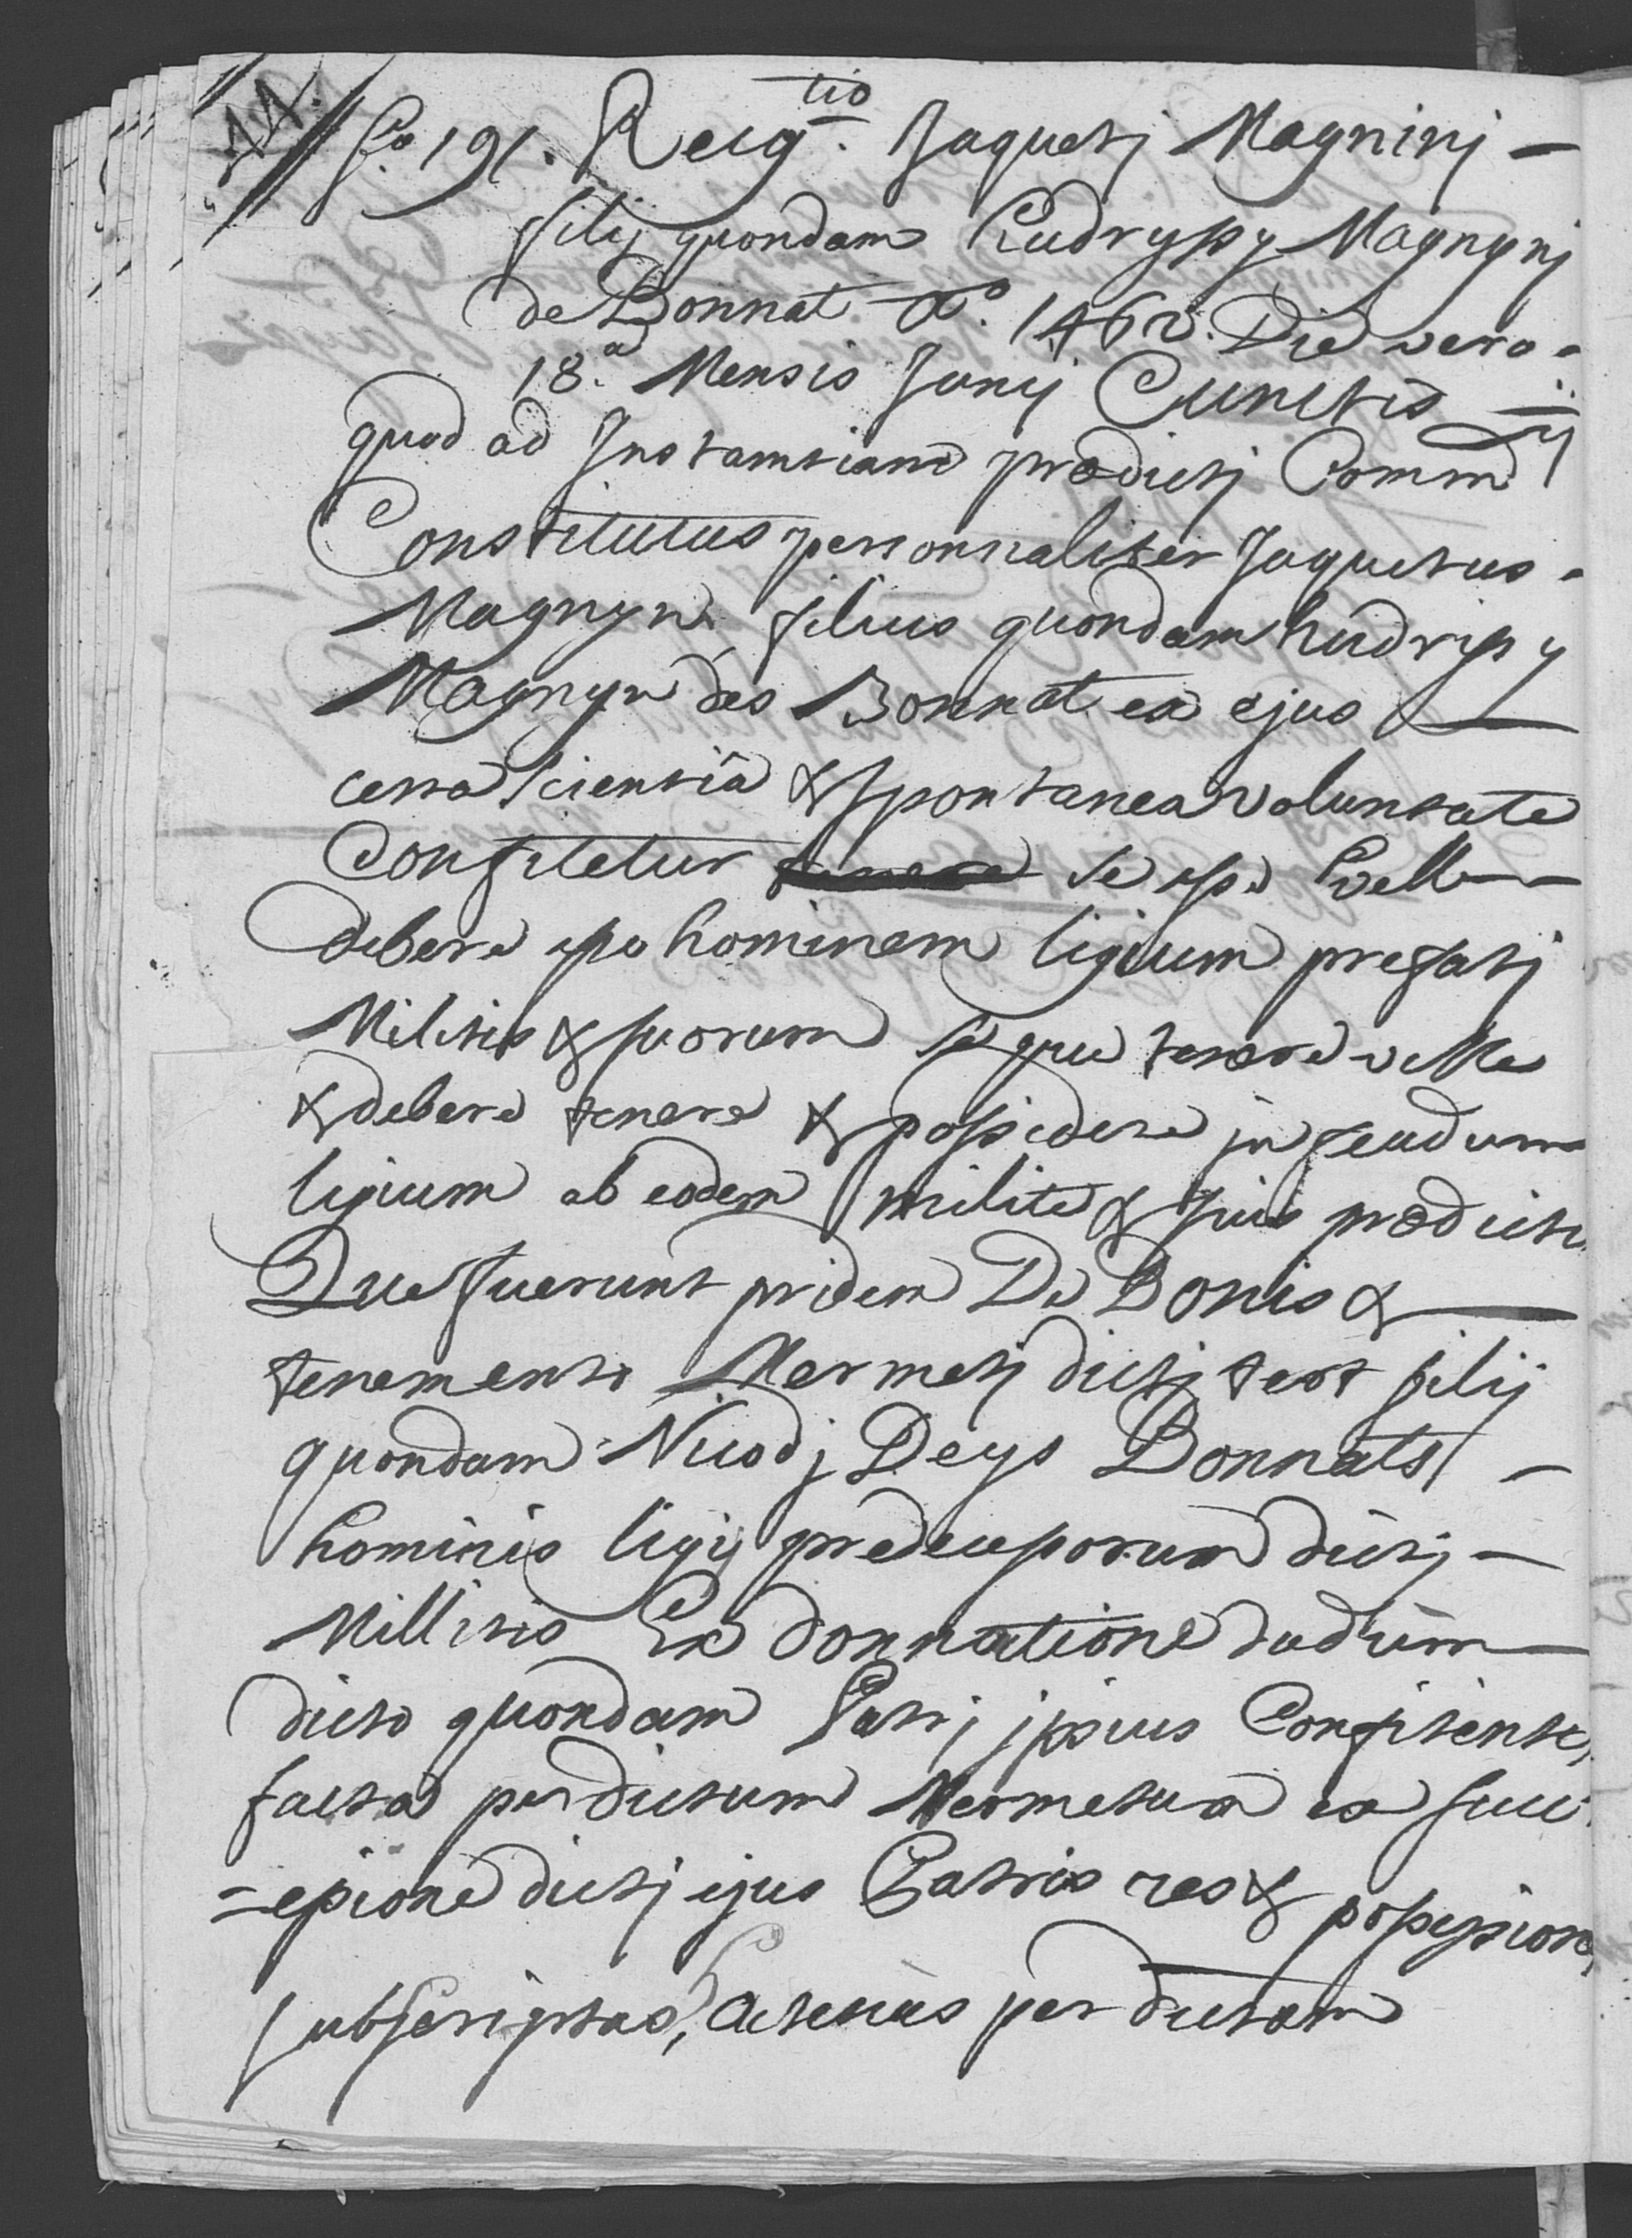 11. fo. 191. Recigtio. Jaquetj Magninj -
filij quondam hudrysy Magnynj
de Bonnat ao. 1462. Die vero
18.a Mensis Junij Cunctis
quod ad Instantiam prædictj Comm
Constitutus personnaliter Jaquetus
Magnyn filius quondam hudrisy
Magnyn des Bonnat ex ejus
certa scientiâ & spontanea voluntate
Confitetur se esse velle
debere esse hominem ligium prefatj
Militis & suorum se que tenere velle
& debere tenere & possidere in feudum
ligium ab eodem milite & suis prædictis
Que fuerunt pridem De Bonis &
tenemento Mermetj dictj test filij
quondam Nicodj Deys Bonnats
hominis ligij predecessorum dictj -
Millitis Ex donnatione dudum
dicto quondam Patrj ipsius Confitentis
facta per dictum Mermetum ex succ
=essione dictj ejus Patris res & possessiones
subscriptas, hactenùs per dictam